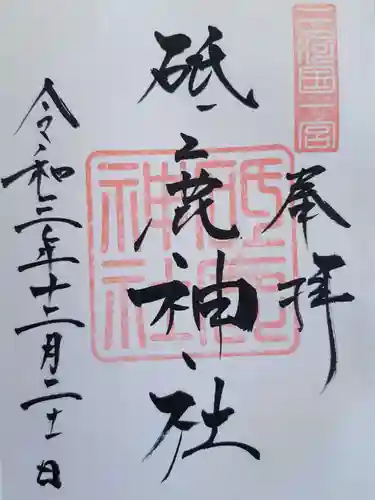 三河國一宮
奉拝
砥鹿神社
砥鹿神社
令和三年十二月二十一日